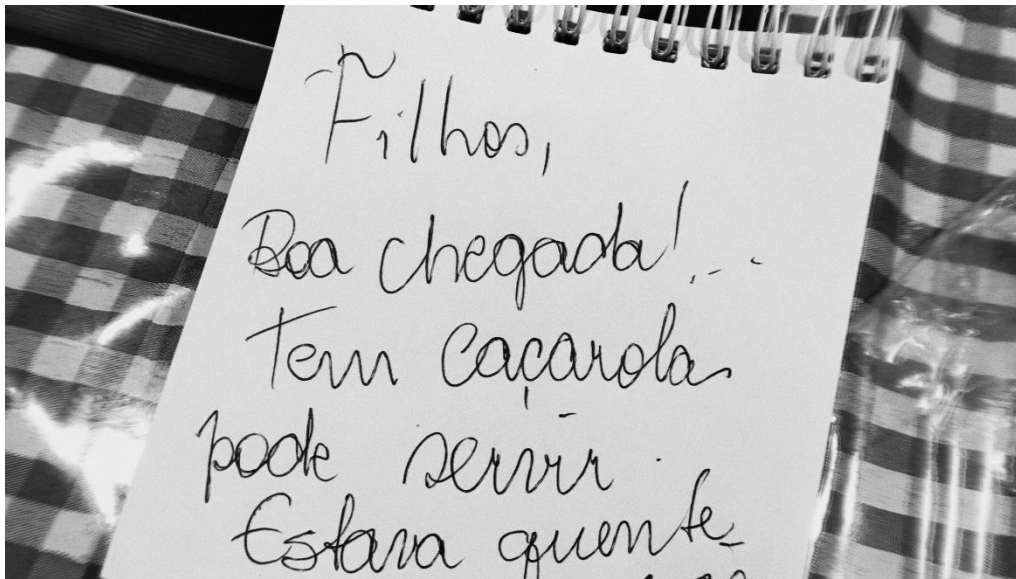 Filhos,
Boa chegada!...
Tem caçarola
pode servir.
Estava quente